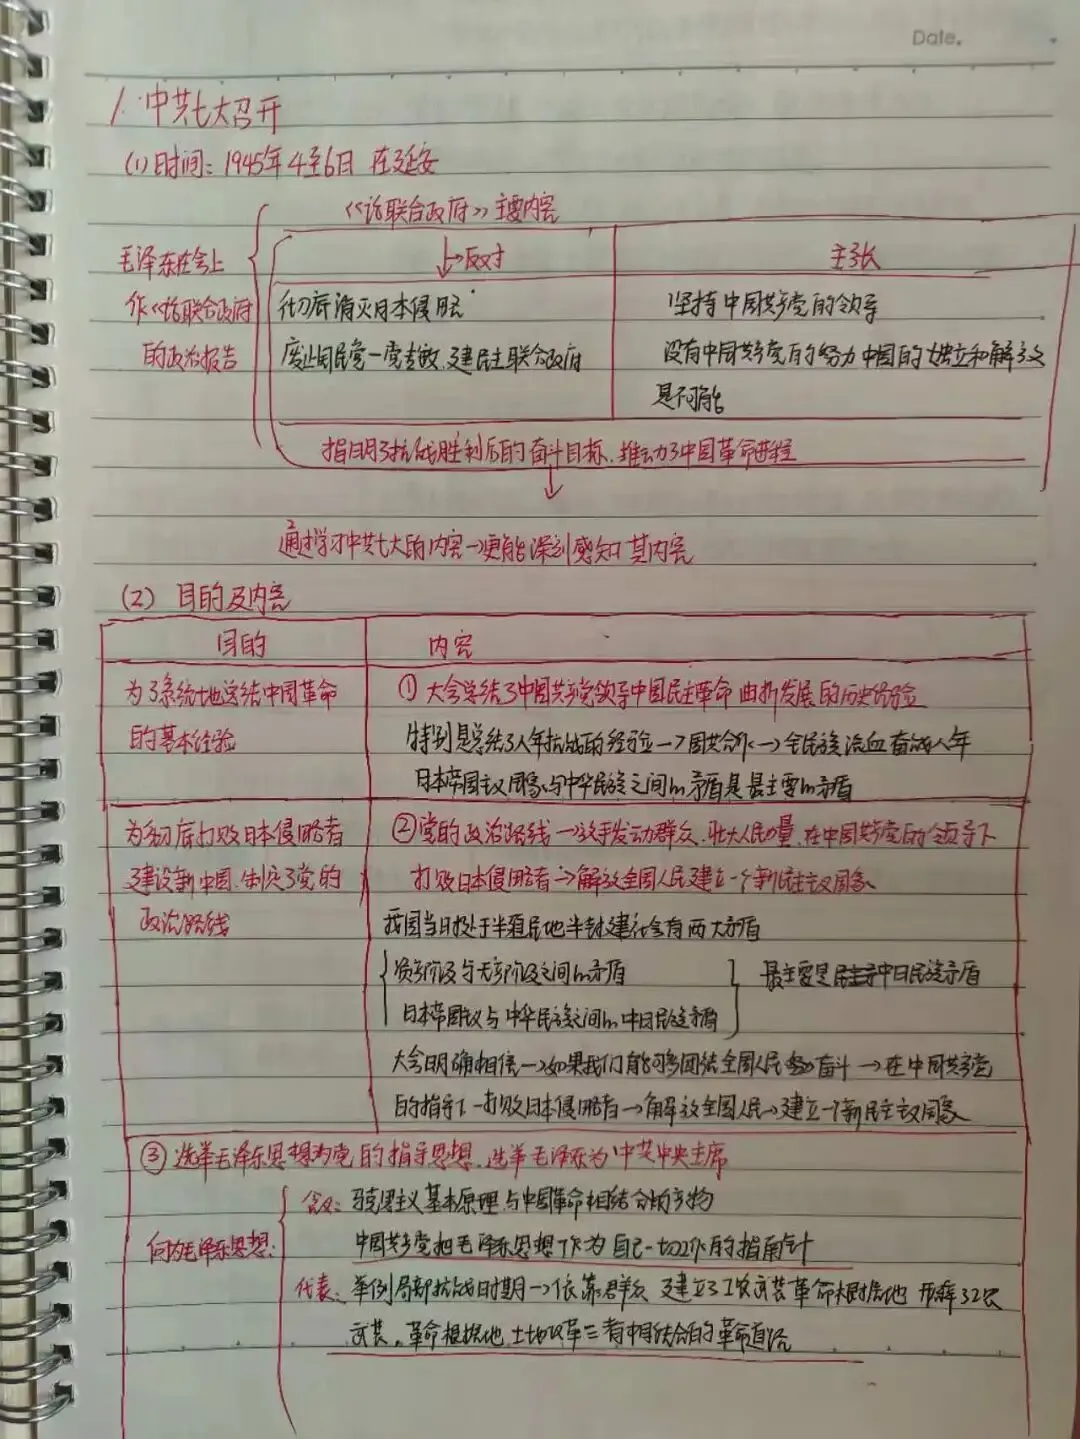 Date.
1. 中共七大召开
(1)时间：1945年4至6日 在延安
《论联合政府》主要内容
毛泽东在会上
作《论联合政府
的政治报告
→反对
主张
彻底消灭日本侵略
坚持中国共产党的领导
废止国民党一党专政,建民主联合政府
没有中国共产党的努力 中国的独立和解放
是不可能
指明了抗战胜利后的奋斗目标,推动了中国革命进程
通过学习中共七大的内容→更能深刻感知其内容
(2) 目的及内容
目的
内容
为了系统地总结中国革命
的基本经验
① 大会总结了中国共产党领导中国民主革命 曲折发展的历史经验
特别是总结了八年抗战的经验→国共合作→全民族流血奋战八年
日本帝国主义国家与中华民族之间的矛盾是最主要的矛盾
为彻底打败日本侵略者
建设新中国,制定了党的
政治路线
②党的政治路线→放手发动群众,壮大人民力量,在中国共产党的领导下
打败日本侵略者→解放全国人民建立一个新民主主义国家
我国当时处于半殖民地半封建社会有两大矛盾
资产阶级与无产阶级之间的矛盾
日本帝国主义与中华民族之间的中日民族矛盾
最主要是中日民族矛盾
大会明确相信→如果我们能够团结全国人民 努力奋斗→在中国共产党
的指导下→打败日本侵略者→解放全国人民→建立一个新民主主义国家
③ 选举毛泽东思想为党的指导思想,选举毛泽东为中共中央主席
何为毛泽东思想:
含义: 马克思主义基本原理与中国革命相结合的产物
中国共产党把毛泽东思想作为自己一切工作的指南针
代表: 举例局部抗战时期→依靠群众 建立了工农武装革命根据地 开辟工农
武装,革命根据地,土地改革三者相结合的革命道路